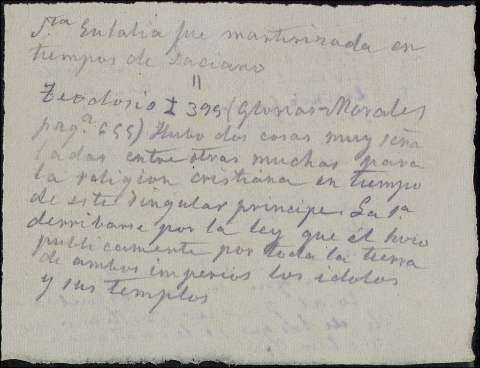 Sta Eulalia fue martirizada en
tiempos de Daciano
"
Teodosio I 399 (Glorias-Morales
pag.a 655) Hubo dos cosas muy seña
ladas entre otras muchas para
la religion cristiana en tiempo
de este singular principe. La 1a
derribarse por la ley que él hizo
publicamente por toda la tierra
de ambos imperios los idolos
y sus templos